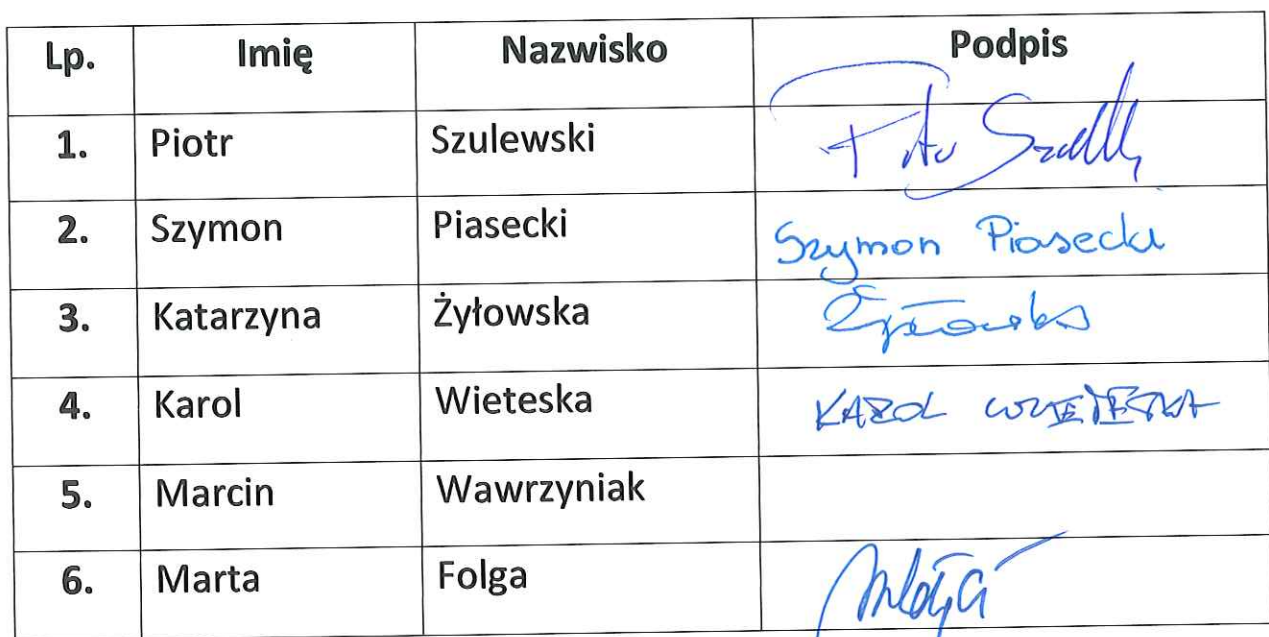 Lp. Imię Nazwisko Podpis
1. Piotr Szulewski
2. Szymon Piasecki Szymon Piasecki
3. Katarzyna Żyłowska Żyłowska
4. Karol Wieteska KAROL WIETESKA
5. Marcin Wawrzyniak
6. Marta Folga